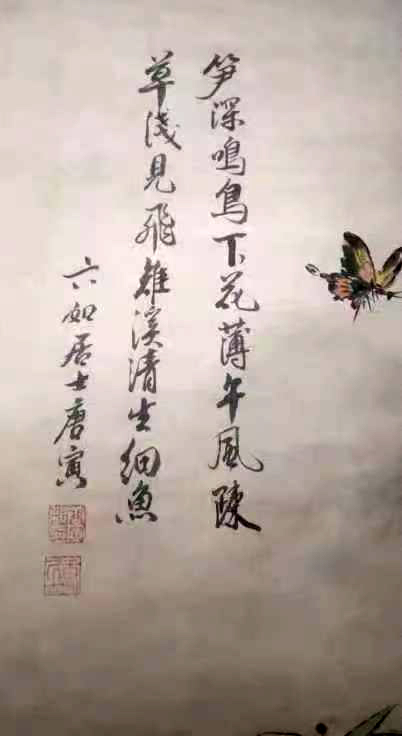 笋深鳴鳥下花薄午風陳
草淺見飛雉溪清出細魚
六如居士唐寅